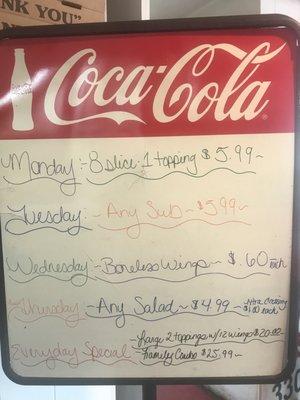 NK YOU"
Coca-Cola
Monday - 8 slice 1 topping $5.99
Tuesday - Any Sub - 5.99
Wednesday - Boneless Wings - $.60 each
Thursday - Any Salad - $4.99
$1.00 each
Large 2 toppings w/12 wings $20.00
Everyday Special
Family Combo $25.99
33